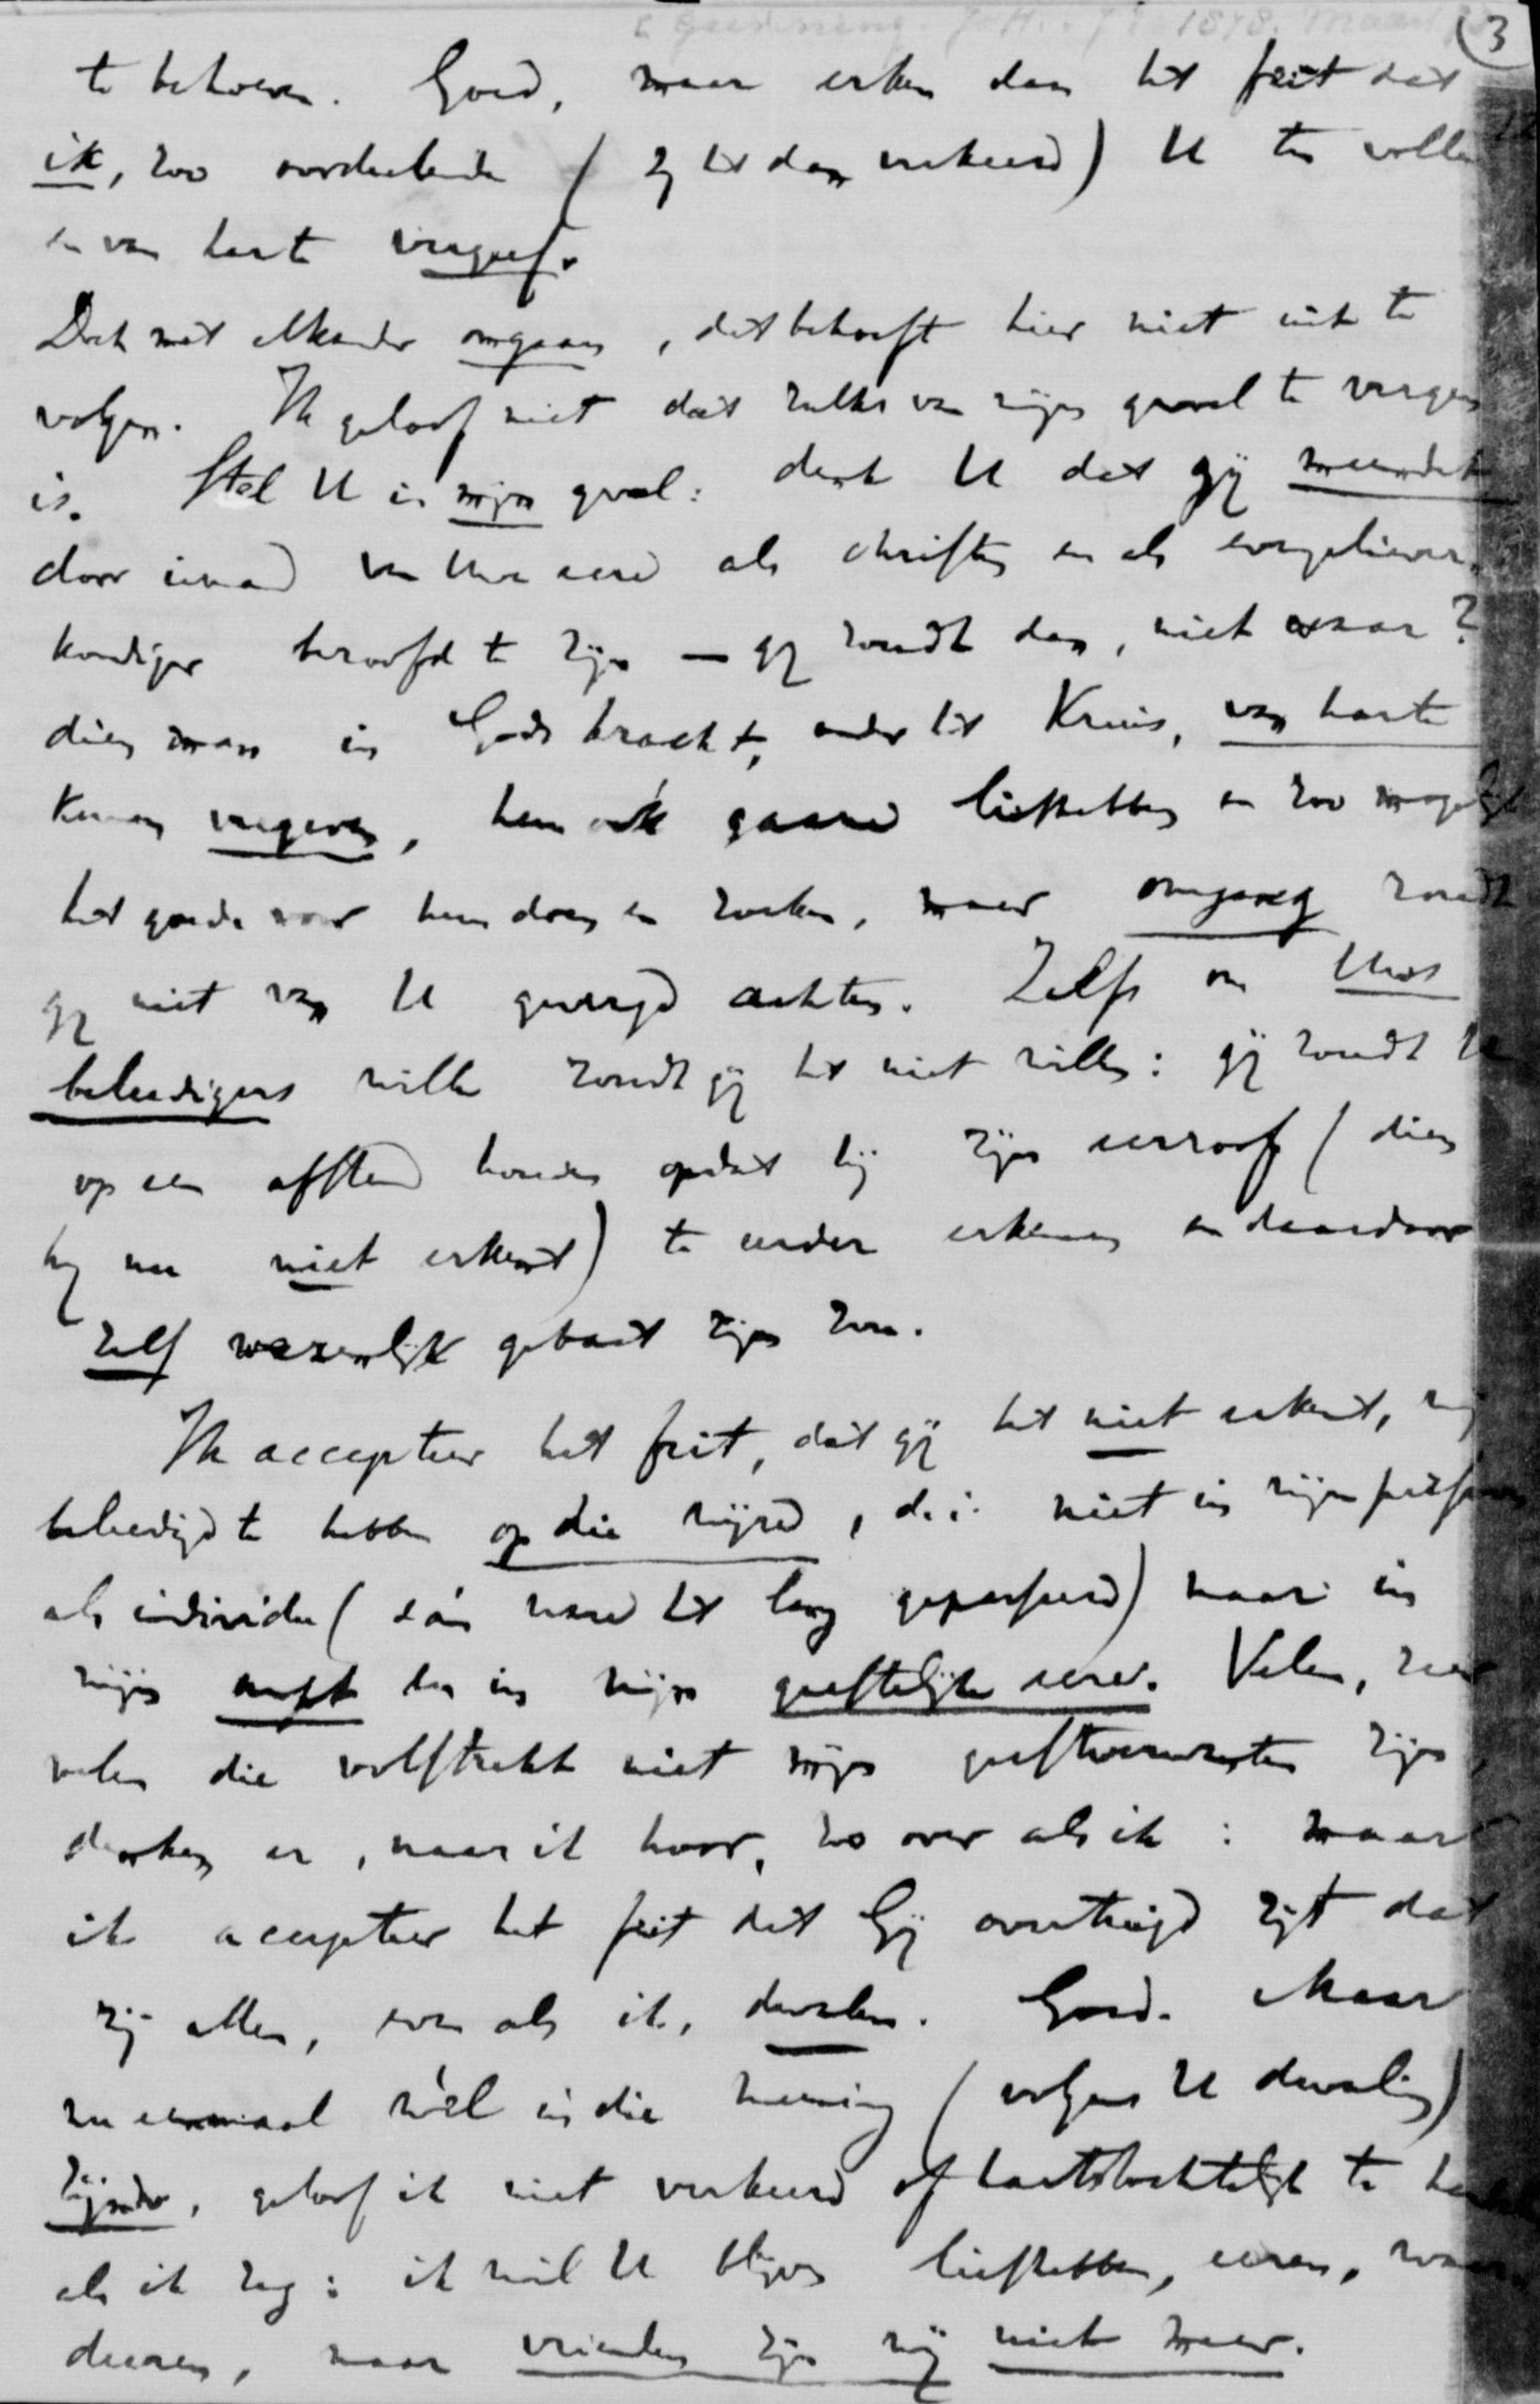 (3
te behoeven. Goed, maar erken dan het feit dat
ik, zoo oordeelende (zij het dan verkeerd) U ten volle
en van harte vergeef.
Doch met elkander omgaan, dat behoeft hier niet uit te
volgen. Ik geloof niet dat zulks van mijn gevoel te vergen
is. Stel U in mijn geval: denk U dat gij meendet
door iemand van Uwe eere als christen en als evangeliever-
kondiger beroofd te zijn — gij zoudt dan, niet waar?
dien man in Gods kracht, onder het Kruis, van harte
kunnen vergeven, hem óók gaarne liefhebben en zoo mogelijk
het goede voor hem doen en zoeken, maar omgang zoudt
gij niet van U gevergd achten. Zelfs om Uws
beleedigers wille zoudt gij het niet willen: gij zoudt U
op een afstand houden opdat hij zijn eerroof (dien
hij nu niet erkent) te eerder erkennen en daardoor
zelf wezenlijk gebaat zijn zou.
Ik accepteer het feit, dat gij het niet erkent, mij
beleedigd te hebben op die wijze, d.i. niet in mijn persoon
als individu (dán ware het lang gepasseerd) maar in
mijn ambt en in mijn geestelijke eere. Velen, zeer
velen die volstrekt niet mijn geestverwanten zijn,
denken er, naar ik hoor, zoo over als ik: maar
ik accepteer het feit dat Gij overtuigd zijt dat
zij allen, even als ik, dwalen. Goed. Maar
nu eenmaal wél in die meening (volgens U dwaling)
zijnde, geloof ik niet verkeerd of hartstochtelijk te
als ik zeg: ik wil U blijven liefhebben, eeren, waar-
deeren, maar vrienden zijn wij niet meer.